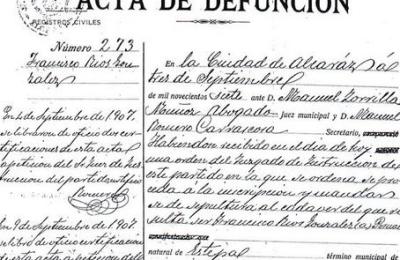 ACTA DE DEFUNCIÓN
REGISTROS CIVILES
Número 273
Francisco Rios Gon
zalez
En 2 de Septiembre de 1907.
se libraron de oficio dos cer
tificaciones de esta acta
a peticion del Sr. Juez de Ins
truccion del partido
Romero
En 9 de Septiembre de
1907.
se libró de oficio certificación
de esta acta a peticion del
En la Ciudad de Alcaráz á
tres de Septiembre
de mil novecientos siete ante D. Manuel Zorrilla
Muñoz Abogado Juez municipal y D. Manuel
Romero Carrascosa Secretario,
Habiendose recibido en el día de hoy
una orden del Juzgado de Instrucción de
este partido en la que se ordena se pro
ceda a la inscripcion y mandar
se de sepultura al cadaver del que re
sulta ser Francisco Rios Gonzalez (a) Pernales
natural de Estepa término municipal de